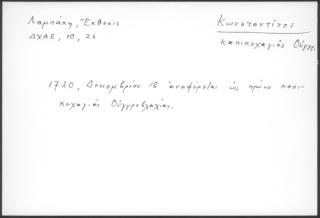 Λαμπάκη, "Έκθεσις
ΔΧΑΕ, 10, 26
Κωνσταντίνος
καπικεχαγιάς Ούγγρ.
1720, Δεκεμβρίου 18 αναφέρεται ως πρώην καπι-
κεχαγιάς Ούγγροβλαχίας.